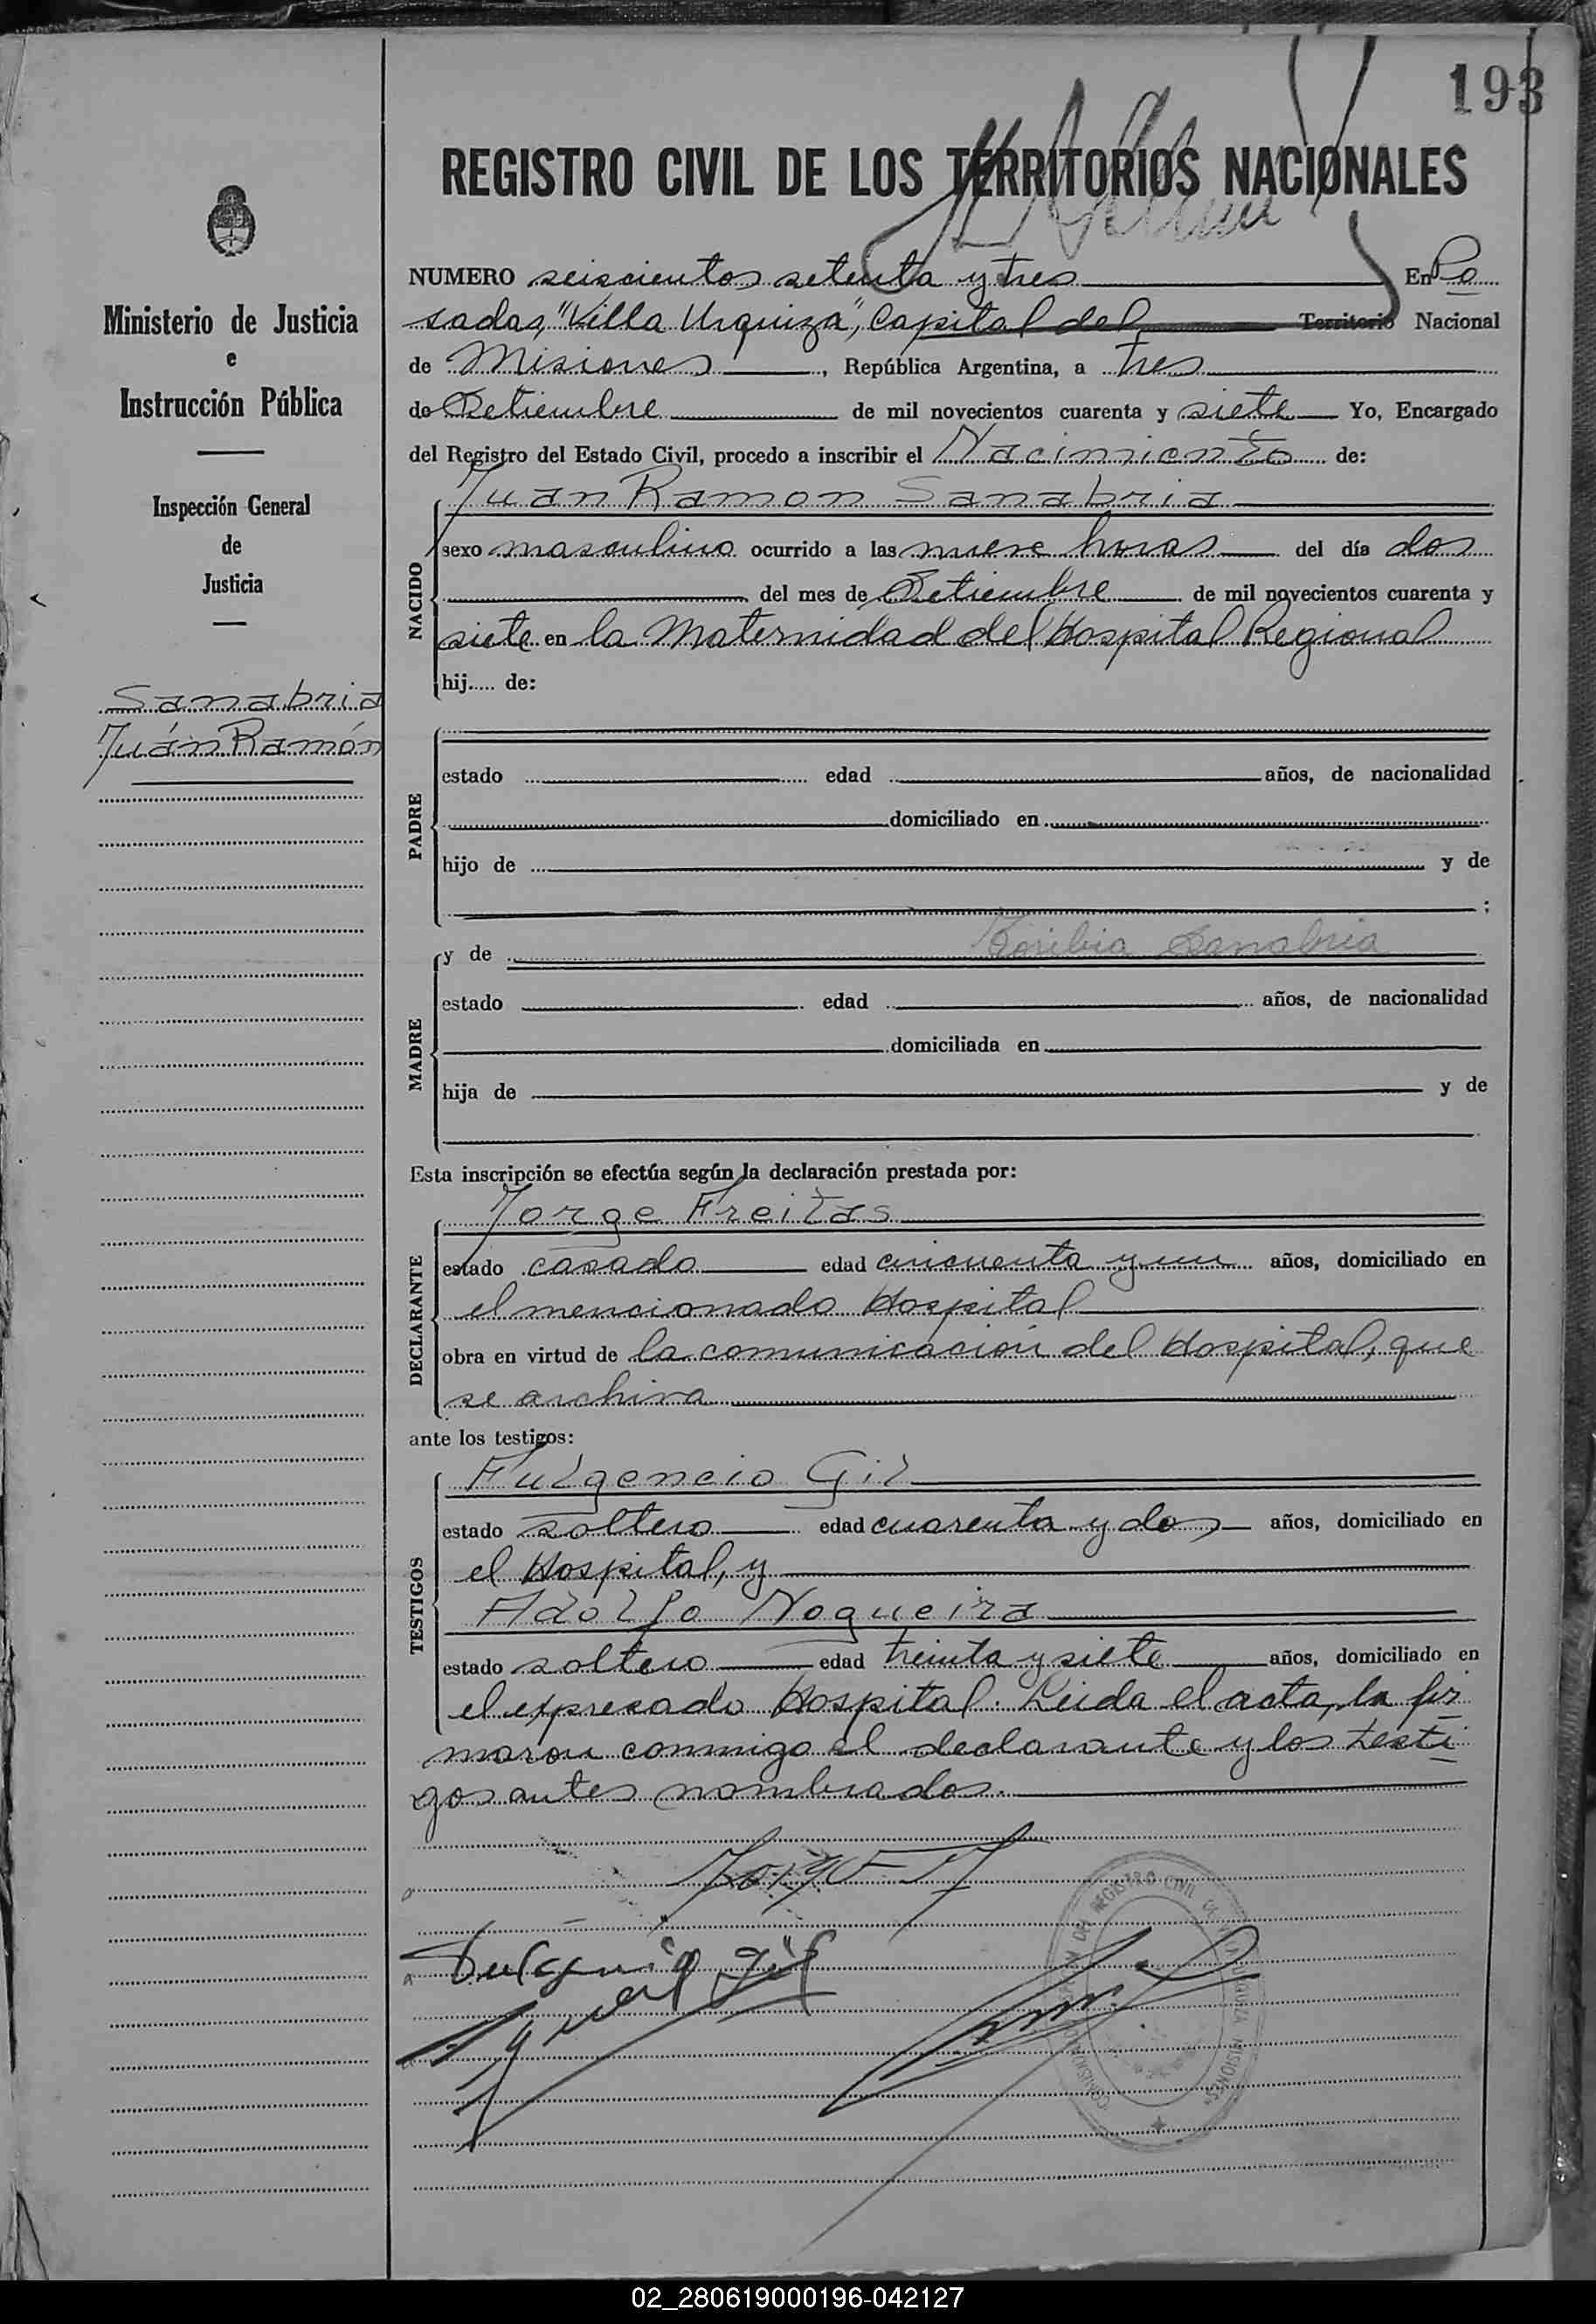 193
REGISTRO CIVIL DE LOS TERRITORIOS NACIONALES
NUMERO seiscientos setenta y tres En Po
sadas, "Villa Urquiza", Capital del Territorio Nacional
de Misiones, República Argentina, a tres
de Setiembre de mil novecientos cuarenta y siete Yo, Encargado
del Registro del Estado Civil, procedo a inscribir el Nacimiento de:
Juan Ramon Sanabria
NACIDO
sexo masculino ocurrido a las nueve horas del día dos
del mes de Setiembre de mil novecientos cuarenta y
siete en la Maternidad del Hospital Regional
hij..... de:
PADRE
estado edad años, de nacionalidad
domiciliado en
hijo de y de
;
MADRE
y de Toribia Sanabria
estado edad años, de nacionalidad
domiciliada en
hija de y de
Esta inscripción se efectúa según la declaración prestada por:
DECLARANTE
Jorge Freitas
estado casado edad cincuenta y un años, domiciliado en
el mencionado Hospital
obra en virtud de la comunicación del Hospital, que
se archiva
ante los testigos:
TESTIGOS
Fulgencio Gil
estado soltero edad cuarenta y dos años, domiciliado en
el Hospital, y
Adolfo Nogueira
estado soltero edad treinta y siete años, domiciliado en
el expresado Hospital. Leida el acta, la fir
maron conmigo el declarante y los testi
gos antes nombrados.
Jorge F
Fulgencio Gil
REGISTRO CIVIL DE VILLA URQUIZA MISIONES
Ministerio de Justicia
e
Instrucción Pública
Inspección General
de
Justicia
Sanabria
Juán Ramón
02_280619000196-042127